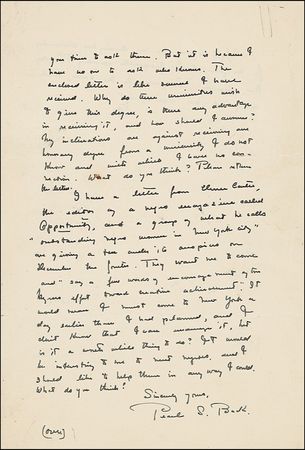 your time to ask them. But it is because I
have no one to ask who knows. The
enclosed letter is like several I have
received. Why do these universities wish
to give this degree, is there any advantage
in receiving it, and how should I answer?
My inclinations are against receiving an
honorary degree from a university I do not
know and with which I have no con-
nection. What do you think? Please return
the letter.
I have a letter from Elmer Carter,
the editor of a negro magazine called
Opportunity, and a group of what he calls
"outstanding negro women in New York city"
are giving a tea under its auspices on
December the fourth. They want me to come
and "say a few words of encouragement of the
Negro effort toward creative achievement." It
would mean I must come to New York a
day earlier than I had planned, and I
don't know that I can manage it, but
is it a worth while thing to do? It would
be interesting to me to meet negroes, and I
should like to help them in any way I could.
What do you think?
Sincerely yours,
Pearl S. Buck.
(over)